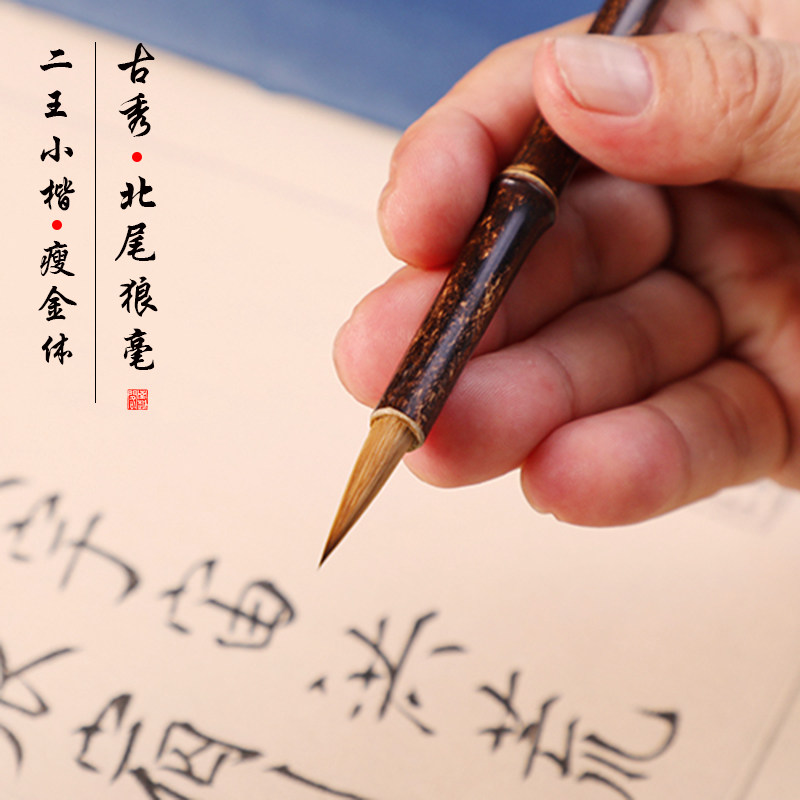 古秀•北尾狼毫
二王小楷•瘦金体
宇宙洪荒
宿